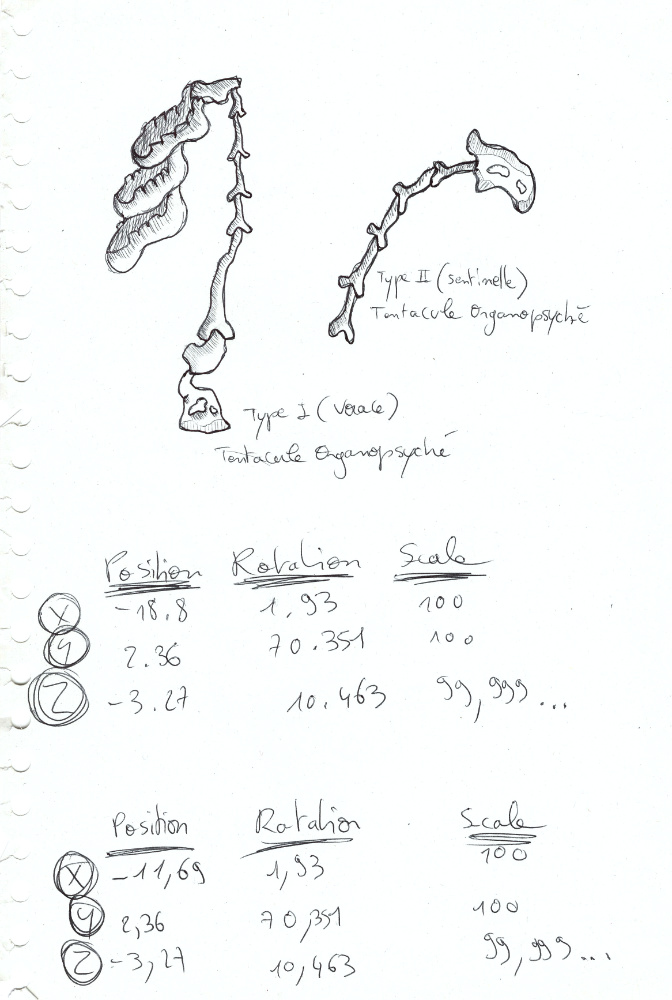 Type II (sentinelle)
Tentacule Organopsyché
Type I (Vorace)
Tentacule Organopsyché
Position Rotation Scale
X -18.8 1,93 100
y 2.36 70.351 100
Z -3.27 10.463 99,999...
Position Rotation Scale
X -11,69 1,93 100
y 2,36 70,351 100
Z -3,27 10,463 99,999...